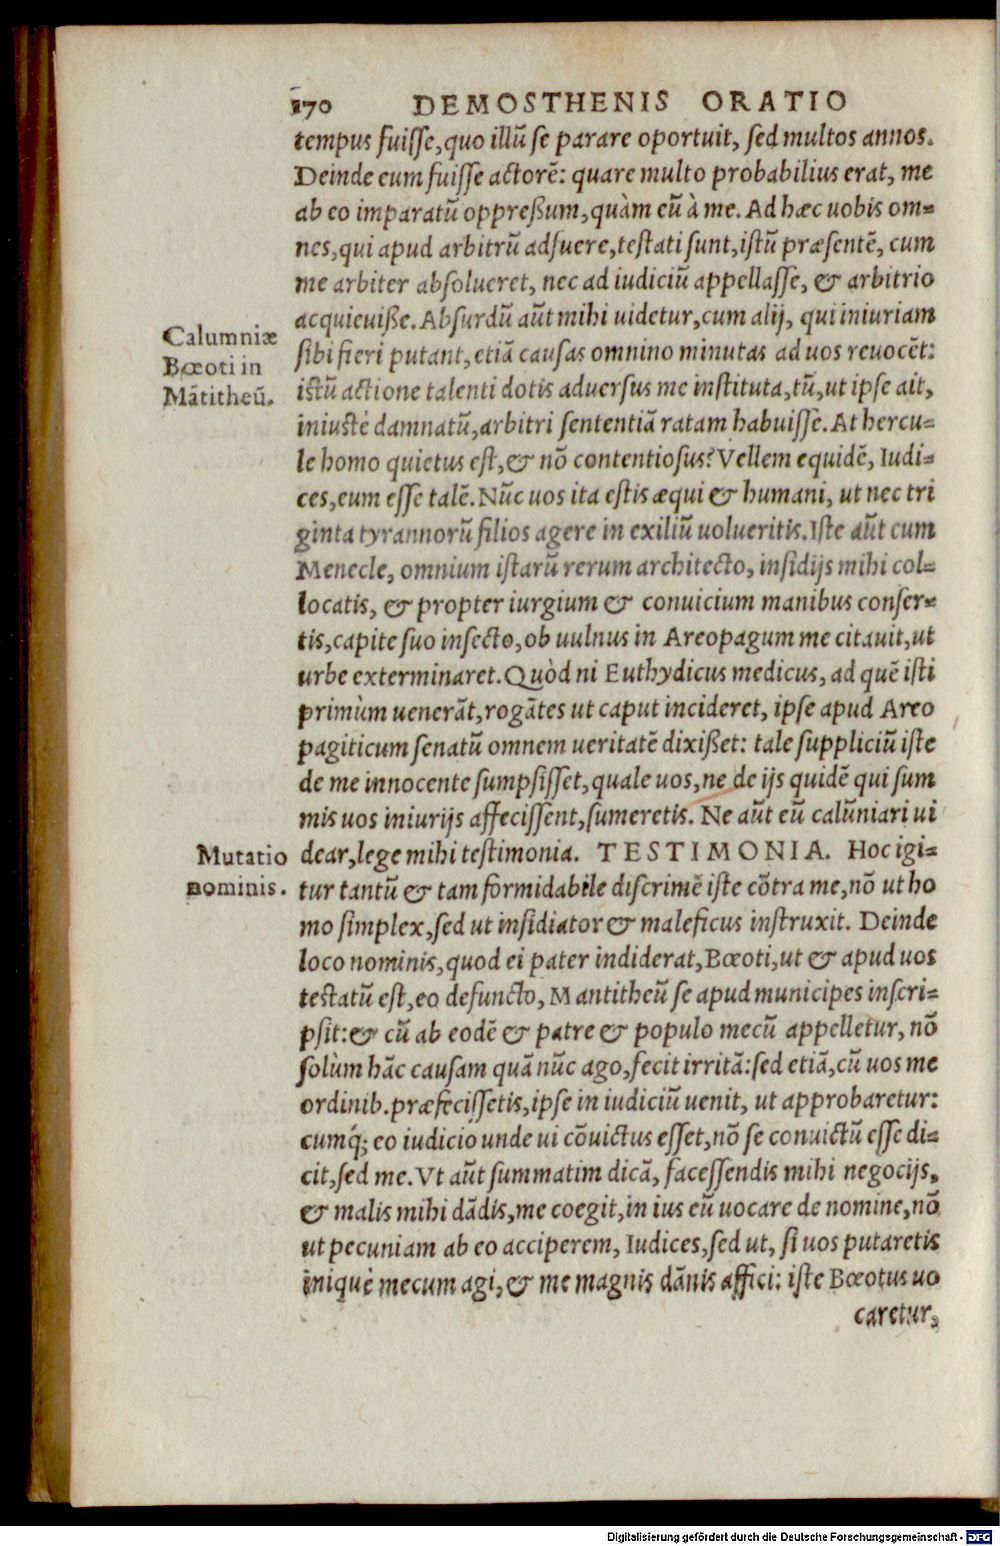 170 DEMOSTHENIS ORATIO
tempus fuisse, quo illũ se parare oportuit, sed multos annos.
Deinde eum fuisse actorẽ: quare multo probabilius erat, me
ab eo imparatũ oppreßum, quàm eũ à me. Ad hæc uobis om=
nes, qui apud arbitrũ adfuere, testati sunt, istũ præsentẽ, cum
me arbiter absolueret, nec ad iudiciũ appellasse, & arbitrio
acquieuiße. Absurdũ aũt mihi uidetur, cum alij, qui iniuriam
Calumniæ
Bœoti in
Mãtitheũ.
sibi fieri putant, etiã causas omnino minutas ad uos reuocẽt:
istũ actione talenti dotis aduersus me instituta, tũ, ut ipse ait,
iniustè damnatũ, arbitri sententiã ratam habuisse. At hercu=
le homo quietus est, & nõ contentiosus? Vellem equidẽ, Iudi=
ces, eum esse talẽ. Nũc uos ita estis æqui & humani, ut nec tri
ginta tyrannorũ filios agere in exiliũ uolueritis. Iste aũt cum
Menecle, omnium istarũ rerum architecto, insidijs mihi col=
locatis, & propter iurgium & conuicium manibus confer=
tis, capite suo insecto, ob uulnus in Areopagum me citauit, ut
urbe exterminaret. Quòd ni Euthydicus medicus, ad quẽ isti
primùm uenerãt, rogãtes ut caput incideret, ipse apud Areo
pagiticum senatũ omnem ueritatẽ dixißet: tale suppliciũ iste
de me innocente sumpsisset, quale uos, ne de ijs quidẽ qui sum
mis uos iniurijs affecissent, sumeretis. Ne aũt eũ calũniari ui
Mutatio
nominis.
dear, lege mihi testimonia. TESTIMONIA. Hoc igi=
tur tantũ & tam formidabile discrimẽ iste cõtra me, nõ ut ho
mo simplex, sed ut insidiator & maleficus instruxit. Deinde
loco nominis, quod ei pater indiderat, Bœoti, ut & apud uos
testatũ est, eo defuncto, Mantitheũ se apud municipes inscri=
psit: & cũ ab eodẽ & patre & populo mecũ appelletur, nõ
solùm hãc causam quã nũc ago, fecit irritã: sed etiã, cũ uos me
ordinib. præfecissetis, ipse in iudiciũ uenit, ut approbaretur:
cumq́; eo iudicio unde ui cõuictus esset, nõ se conuictũ esse di=
cit, sed me. Vt aũt summatim dicã, facessendis mihi negocijs,
& malis mihi dãdis, me coegit, in ius eũ uocare de nomine, nõ
ut pecuniam ab eo acciperem, Iudices, sed ut, si uos putaretis
iniquè mecum agi, & me magnis dãnis affici: iste Bœotus uo
caretur,
Digitalisierung gefördert durch die Deutsche Forschungsgemeinschaft - DFG